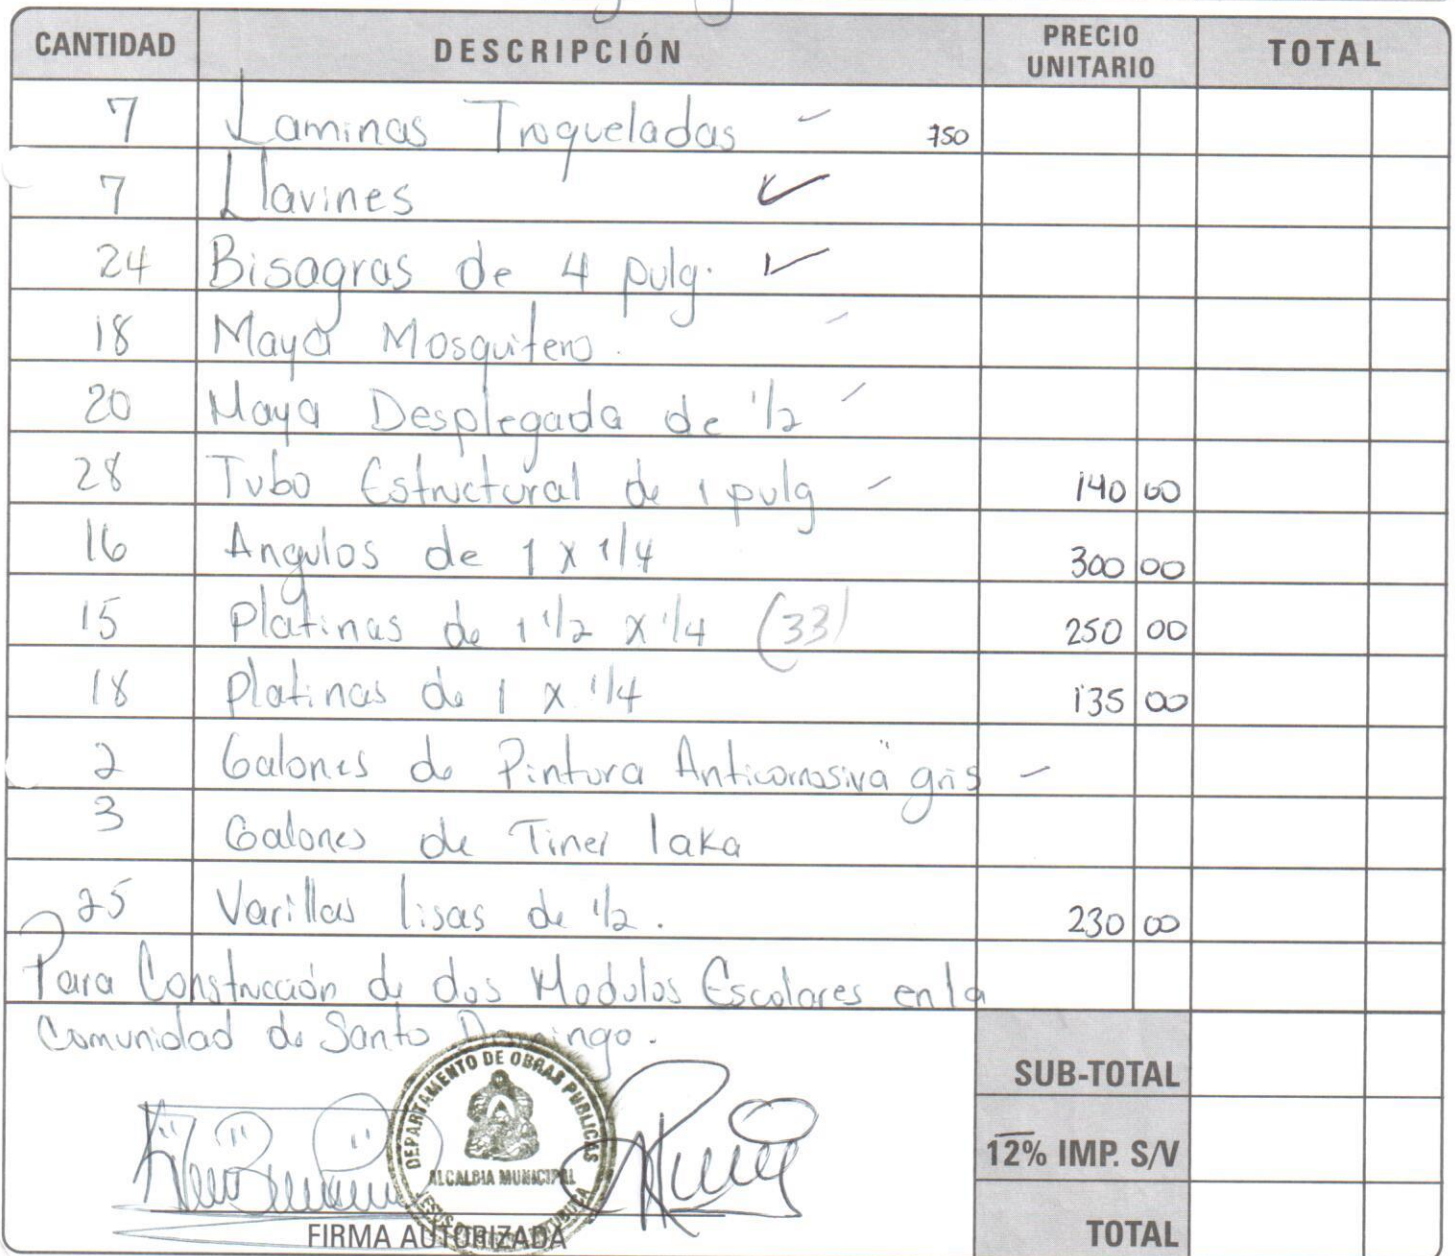 CANTIDAD DESCRIPCIÓN PRECIO UNITARIO TOTAL
7 Laminas Troqueladas 750
7 Llavines
24 Bisagras de 4 pulg.
18 Maya Mosquitero.
20 Maya Desplegada de 1/2
28 Tubo Estructural de 1 pulg 140 00
16 Angulos de 1 x 1/4 300 00
15 Platinas de 1 1/2 x 1/4 (33) 250 00
18 Platinas de 1 x 1/4 135 00
2 Galones de Pintura Anticorrosiva "gris
3 Galones de Tiner laka
25 Varillas lisas de 1/2. 230 00
Para Construcción de dos Modulos Escolares en la
Comunidad de Santo Domingo.
SUB-TOTAL
12% IMP. S/V
TOTAL
DEPARTAMENTO DE OBRAS PUBLICAS
ALCALDIA MUNICIPAL
JESUS DE
FIRMA AUTORIZADA